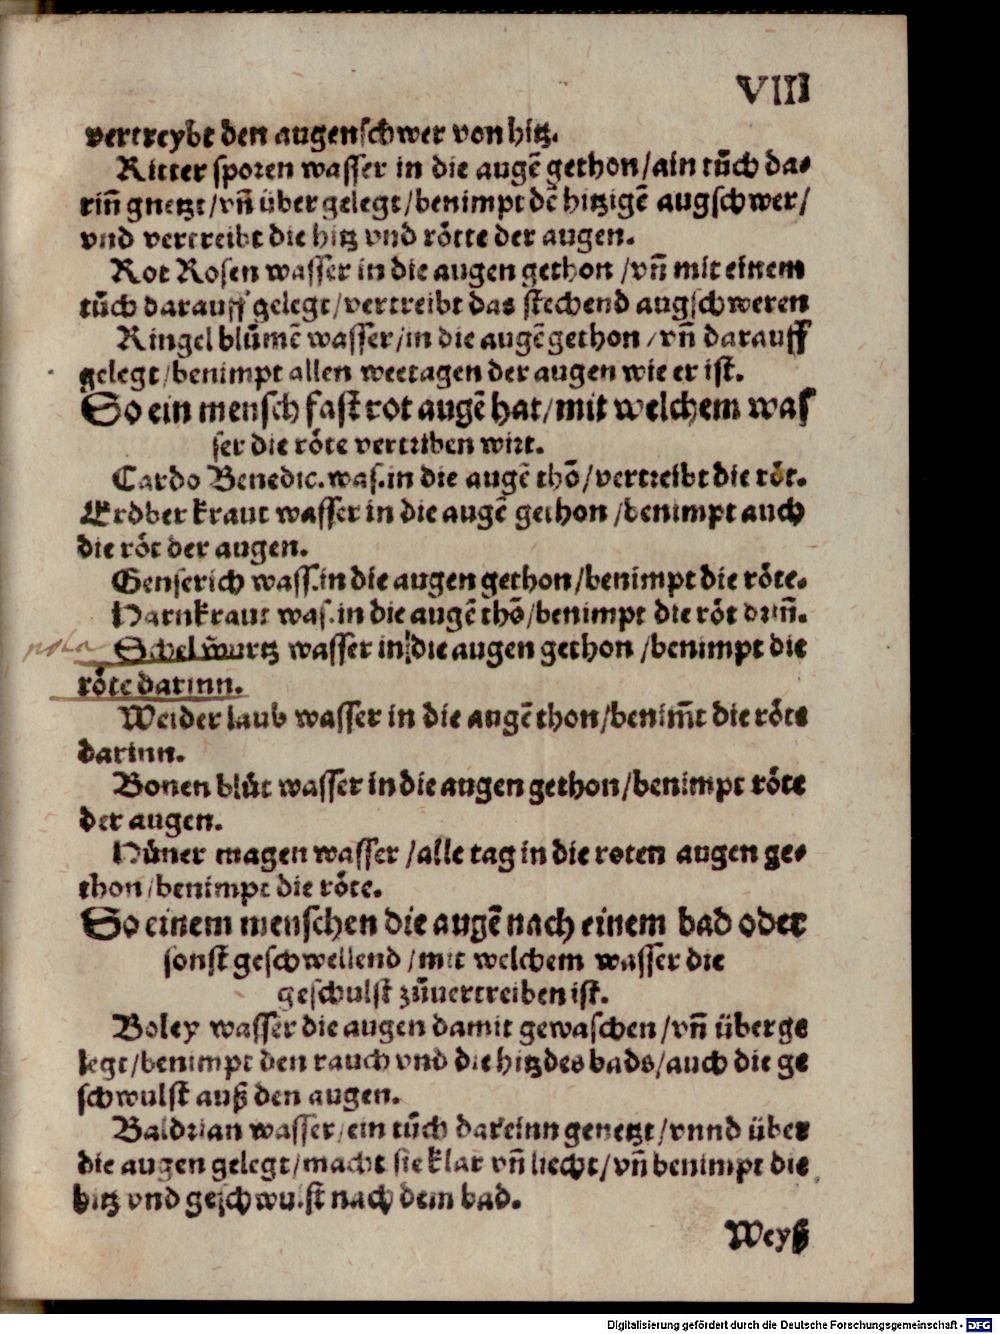 VIII
vertreybt den augenschwer von hitz.
Ritter sporen wasser in die augē gethon/ain tuͦch da⸗
riñ gnetzt/vñ über gelegt/benimpt dē hitzigē augschwer/
vnd vertreibt die hitz vnd roͤtte der augen.
Rot Rosen wasser in die augen gethon /vñ mit einem
tuͦch darauff gelegt/vertreibt das stechend augschweren
Ringel bluͦmē wasser/in die augē gethon /vñ darauff
gelegt/benimpt allen weetagen der augen wie er ist.
So ein mensch fast rot augē hat/mit welchem was
ser die roͤte vertriben wirt.
Cardo Benedic. was. in die augē thō/vertreibt die roͤt.
Erdber kraut wasser in die augē gethon /benimpt auch
die roͤt der augen.
Genserich wass. in die augen gethon/benimpt die roͤte.
Harnkraut was. in die augē thō/benimpt die roͤt driñ.
nota Schelwurtz wasser in die augen gethon /benimpt die
roͤte darinn.
Weider laub wasser in die augē thon/benim̃t die roͤte
darinn.
Bonen bluͤt wasser in die augen gethon/benimpt roͤte
der augen.
Huͤner magen wasser /alle tag in die roten augen ge⸗
thon/benimpt die roͤte.
So einem menschen die augē nach einem bad oder
sonst geschwellend /mit welchem wasser die
geschulst zuͦuertreiben ist.
Boley wasser die augen damit gewaschen/vñ überge
legt/benimpt den rauch vnd die hitz des bads/auch die ge
schwulst auß den augen.
Baldrian wasser/ein tuͦch dareinn genetzt/vnnd über
die augen gelegt/macht sie klar vñ liecht/vñ benimpt die
hitz vnd geschwulst nach dem bad.
Weyß
Digitalisierung gefördert durch die Deutsche Forschungsgemeinschaft - DFG